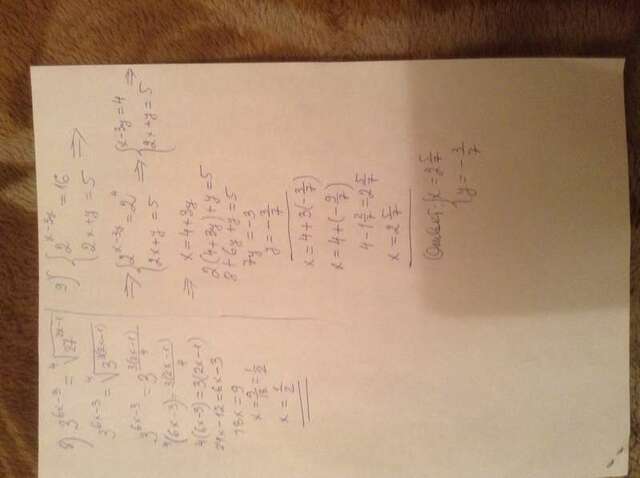 8) 3^{6x-3} = ⁴√(27^{2x-1})
3^{6x-3} = ⁴√(3^{3(2x-1)})
3^{6x-3} = 3^{3(2x-1)/4}
(6x-3) = 3(2x-1)/4
4(6x-3) = 3(2x-1)
24x-12 = 6x-3
18x = 9
x = 9/18 = 1/2
x = 1/2
9) { 2^{x-3y} = 16
2x+y = 5 ⇒
⇒ { 2^{x-3y} = 2^4
2x+y = 5
⇒ { x-3y = 4 ⇒
2x+y = 5
⇒ x = 4+3y
2(4+3y)+y = 5
8+6y+y = 5
7y = -3
y = -3/7
x = 4+3(-3/7)
x = 4+(-9/7)
4-1 2/7 = 2 5/7
x = 2 5/7
Ответ: { x = 2 5/7
y = -3/7